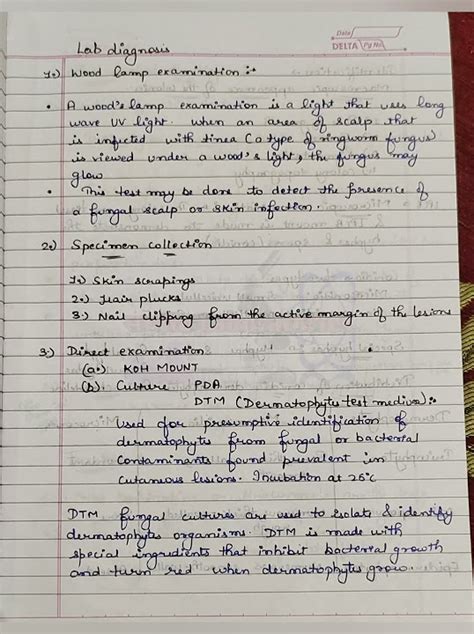 Date
DELTA Pg No
Lab diagnosis
1.) Wood lamp examination :-
• A wood's lamp examination is a light that uses long
wave UV light. when an area of scalp that
is infected with tinea (a type of ringworm fungus)
is viewed under a wood's light, the fungus may
glow
• This test may be done to detect the presence of
a fungal scalp or skin infection.
2.) Specimen collection
1.) Skin scrapings
2.) Hair plucks
3.) Nail clipping from the active margin of the lesions
3.) Direct examination
(a.) KOH MOUNT
(b) Culture PDA
DTM (Dermatophytes test mediva):-
Used for presumptive identification of
dermatophytes from fungal or bacterial
contaminants found prevalent in
cutaneous lesions. Incubation at 26°C
DTM fungal cultures are used to isolate & identify
dermatophytes organisms. DTM is made with
special ingredients that inhibit bacterial growth
and turn red when dermatophytes grow.